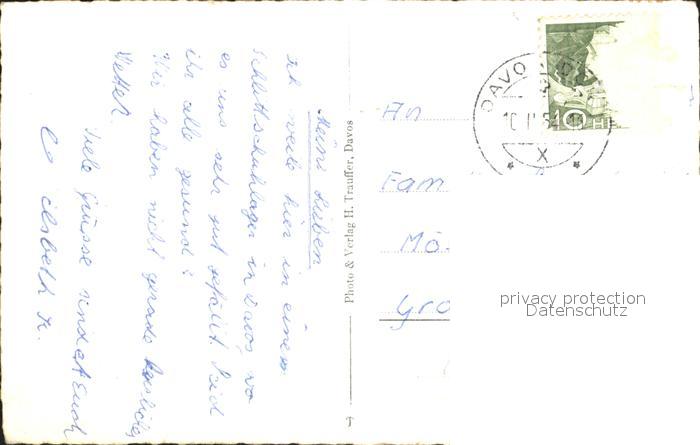 Meine Lieben
Ich weile hier in einem
Schlittschuhlager in Davos, wo
es uns sehr gut gefällt. Seid
ihr alle gesund?
Wir haben nicht gerade herrliches
Wetter.
Viele Grüsse sendet Euch
Elsbeth K.
Photo & Verlag H. Trauffer, Davos
An
Fam
Mö.
Gro
DAVO
10 HE
X
privacy protection
Datenschutz